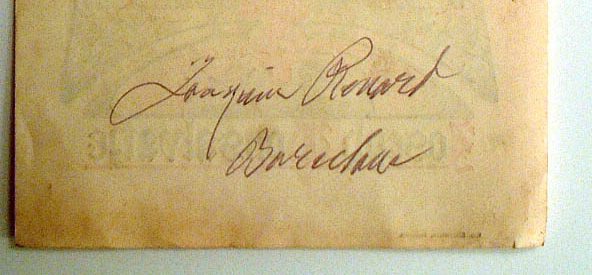 Joaquin Renart
Barcelona